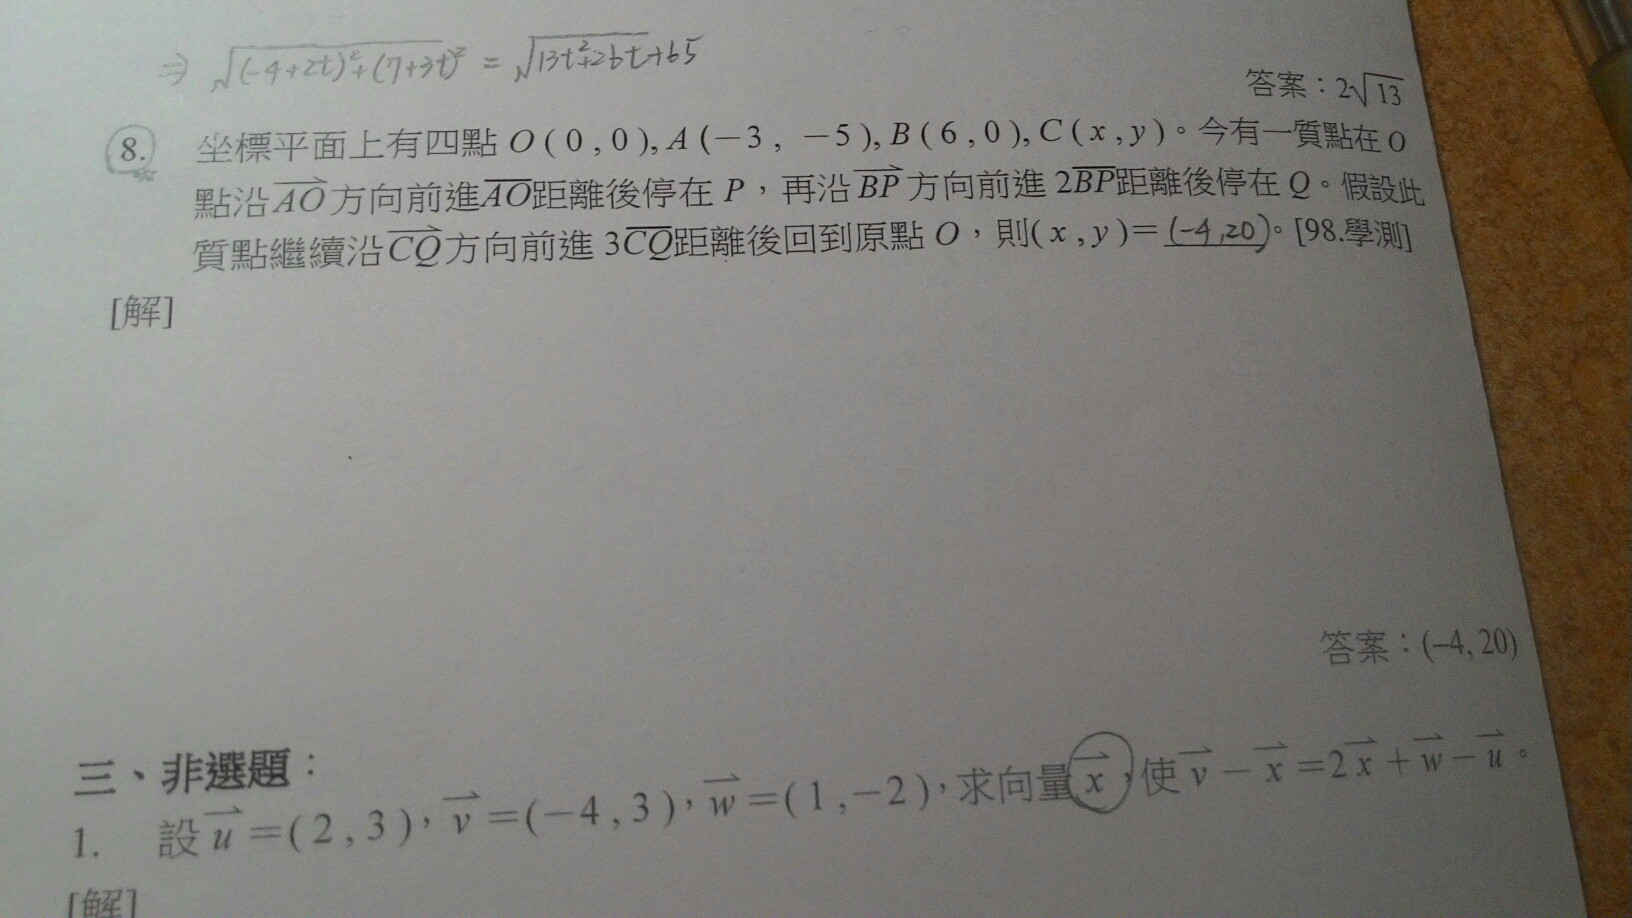 ⇒ √(-4+2t)²+(7+3t)² = √13t²+26t+65
答案：2√13
8. 坐標平面上有四點 O(0,0), A(−3, −5), B(6,0), C(x,y)。今有一質點在 O
點沿AO方向前進AO距離後停在 P，再沿BP方向前進 2BP距離後停在 Q。假設此
質點繼續沿CQ方向前進 3CQ距離後回到原點 O，則(x,y)=(-4,20)。[98.學測]
[解]
答案：(−4, 20)
三、非選題：
1. 設u=(2,3)，v=(−4,3)，w=(1,−2)，求向量x，使v−x=2x+w−u。
[解]